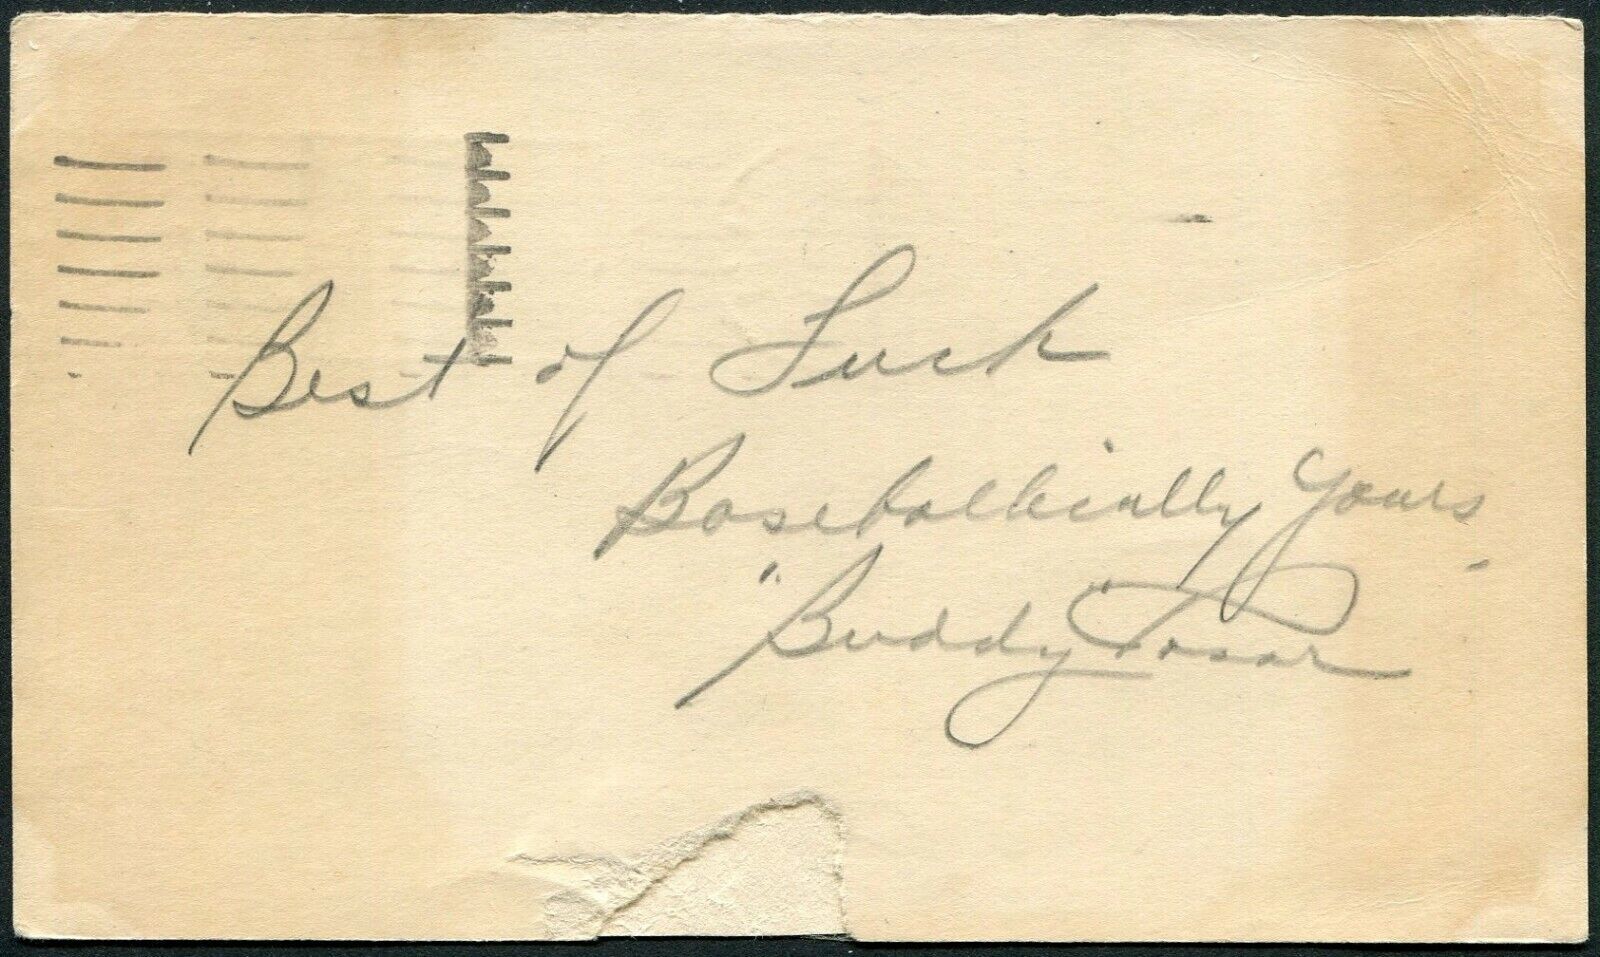 Best of Luck
Baseballically Yours
"Buddy" Rosar